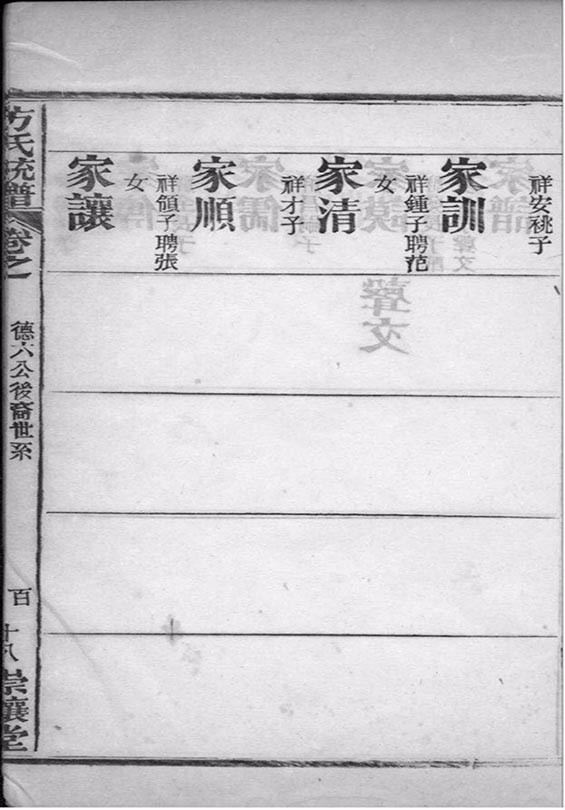 祥安祧子
家訓
祥鍾子聘范
女
家清
祥才子
家順
祥頟子聘張
女
家讓
方氏統譜
卷之一
德六公後裔世系
百
十八
崇讓堂